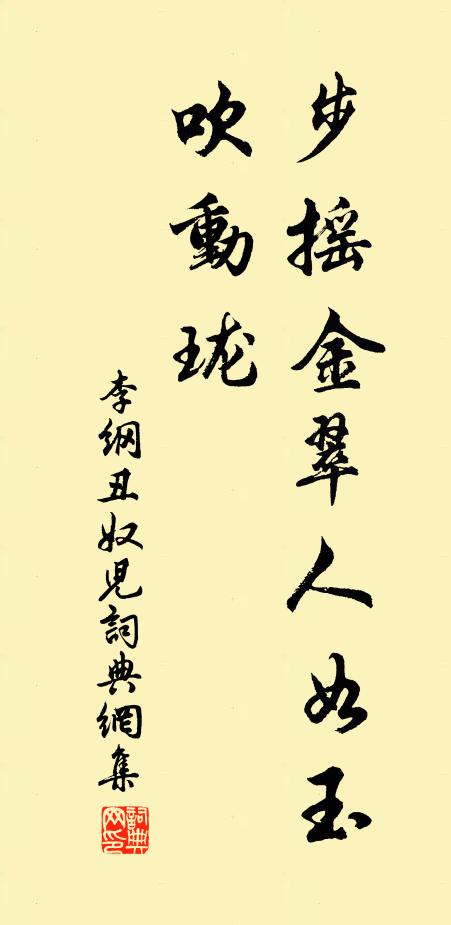 步摇金翠人如玉
吹動珑
李纲丑奴兒詞典網集
詞典网印